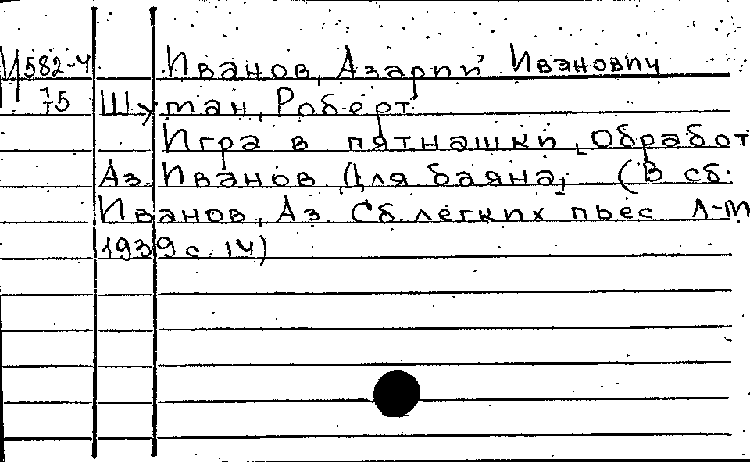 И582-4 Иванов, Азарий Иванович
75 Шуман, Роберт
Игра в пятнашки, Обработ
Аз. Иванов Для баяна, (В сб:
Иванов, Аз. Сб. легких пьес Л-М
1939 с. 14)